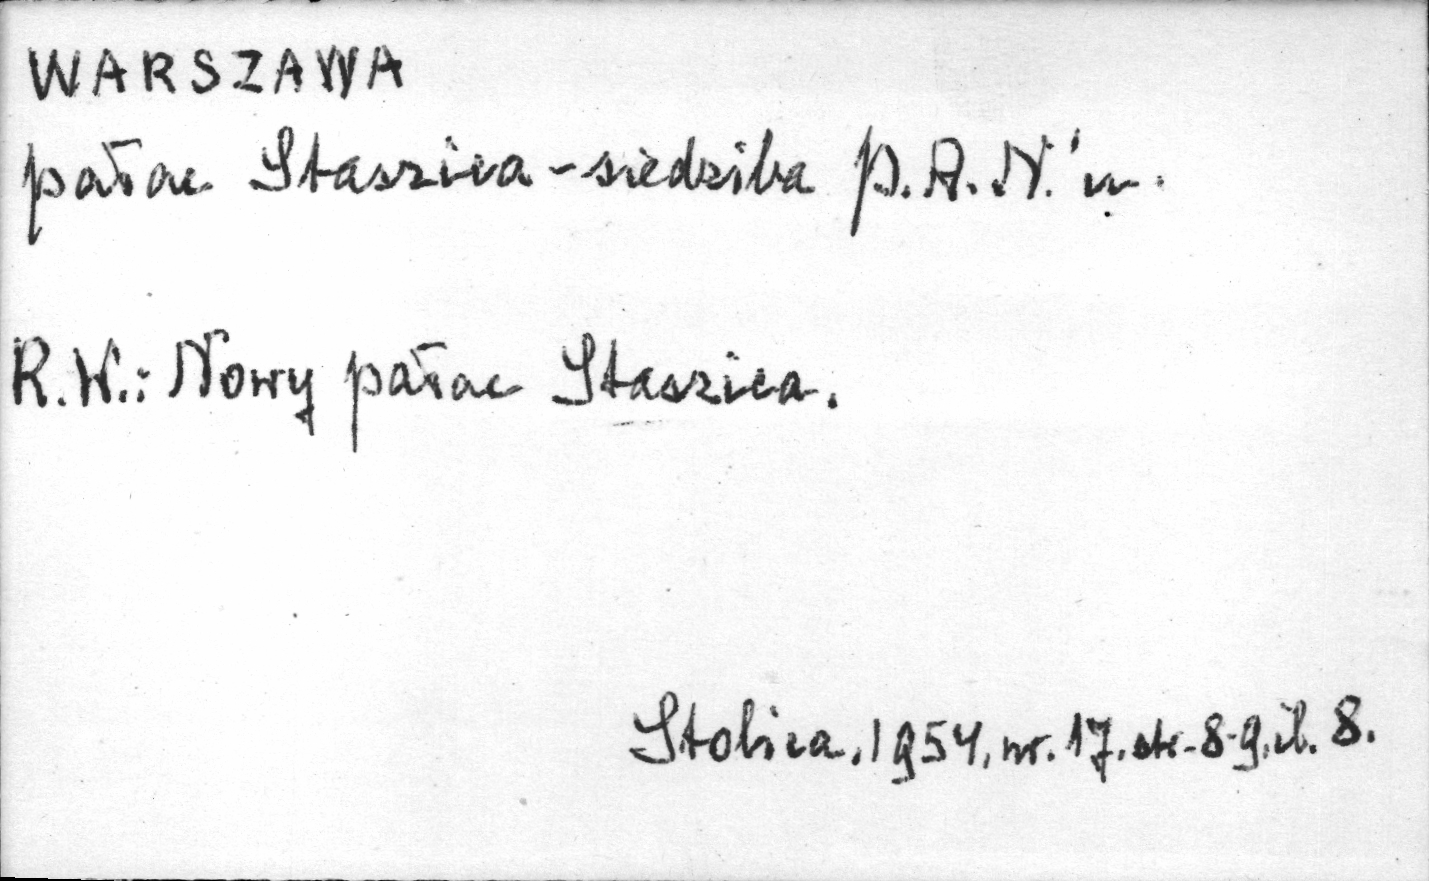 WARSZAWA
pałac Staszica - siedziba P.A.N.'u.
R.W.: Nowy pałac Staszica.
Stolica. 1954, nr. 17. str. 8-9, il. 8.